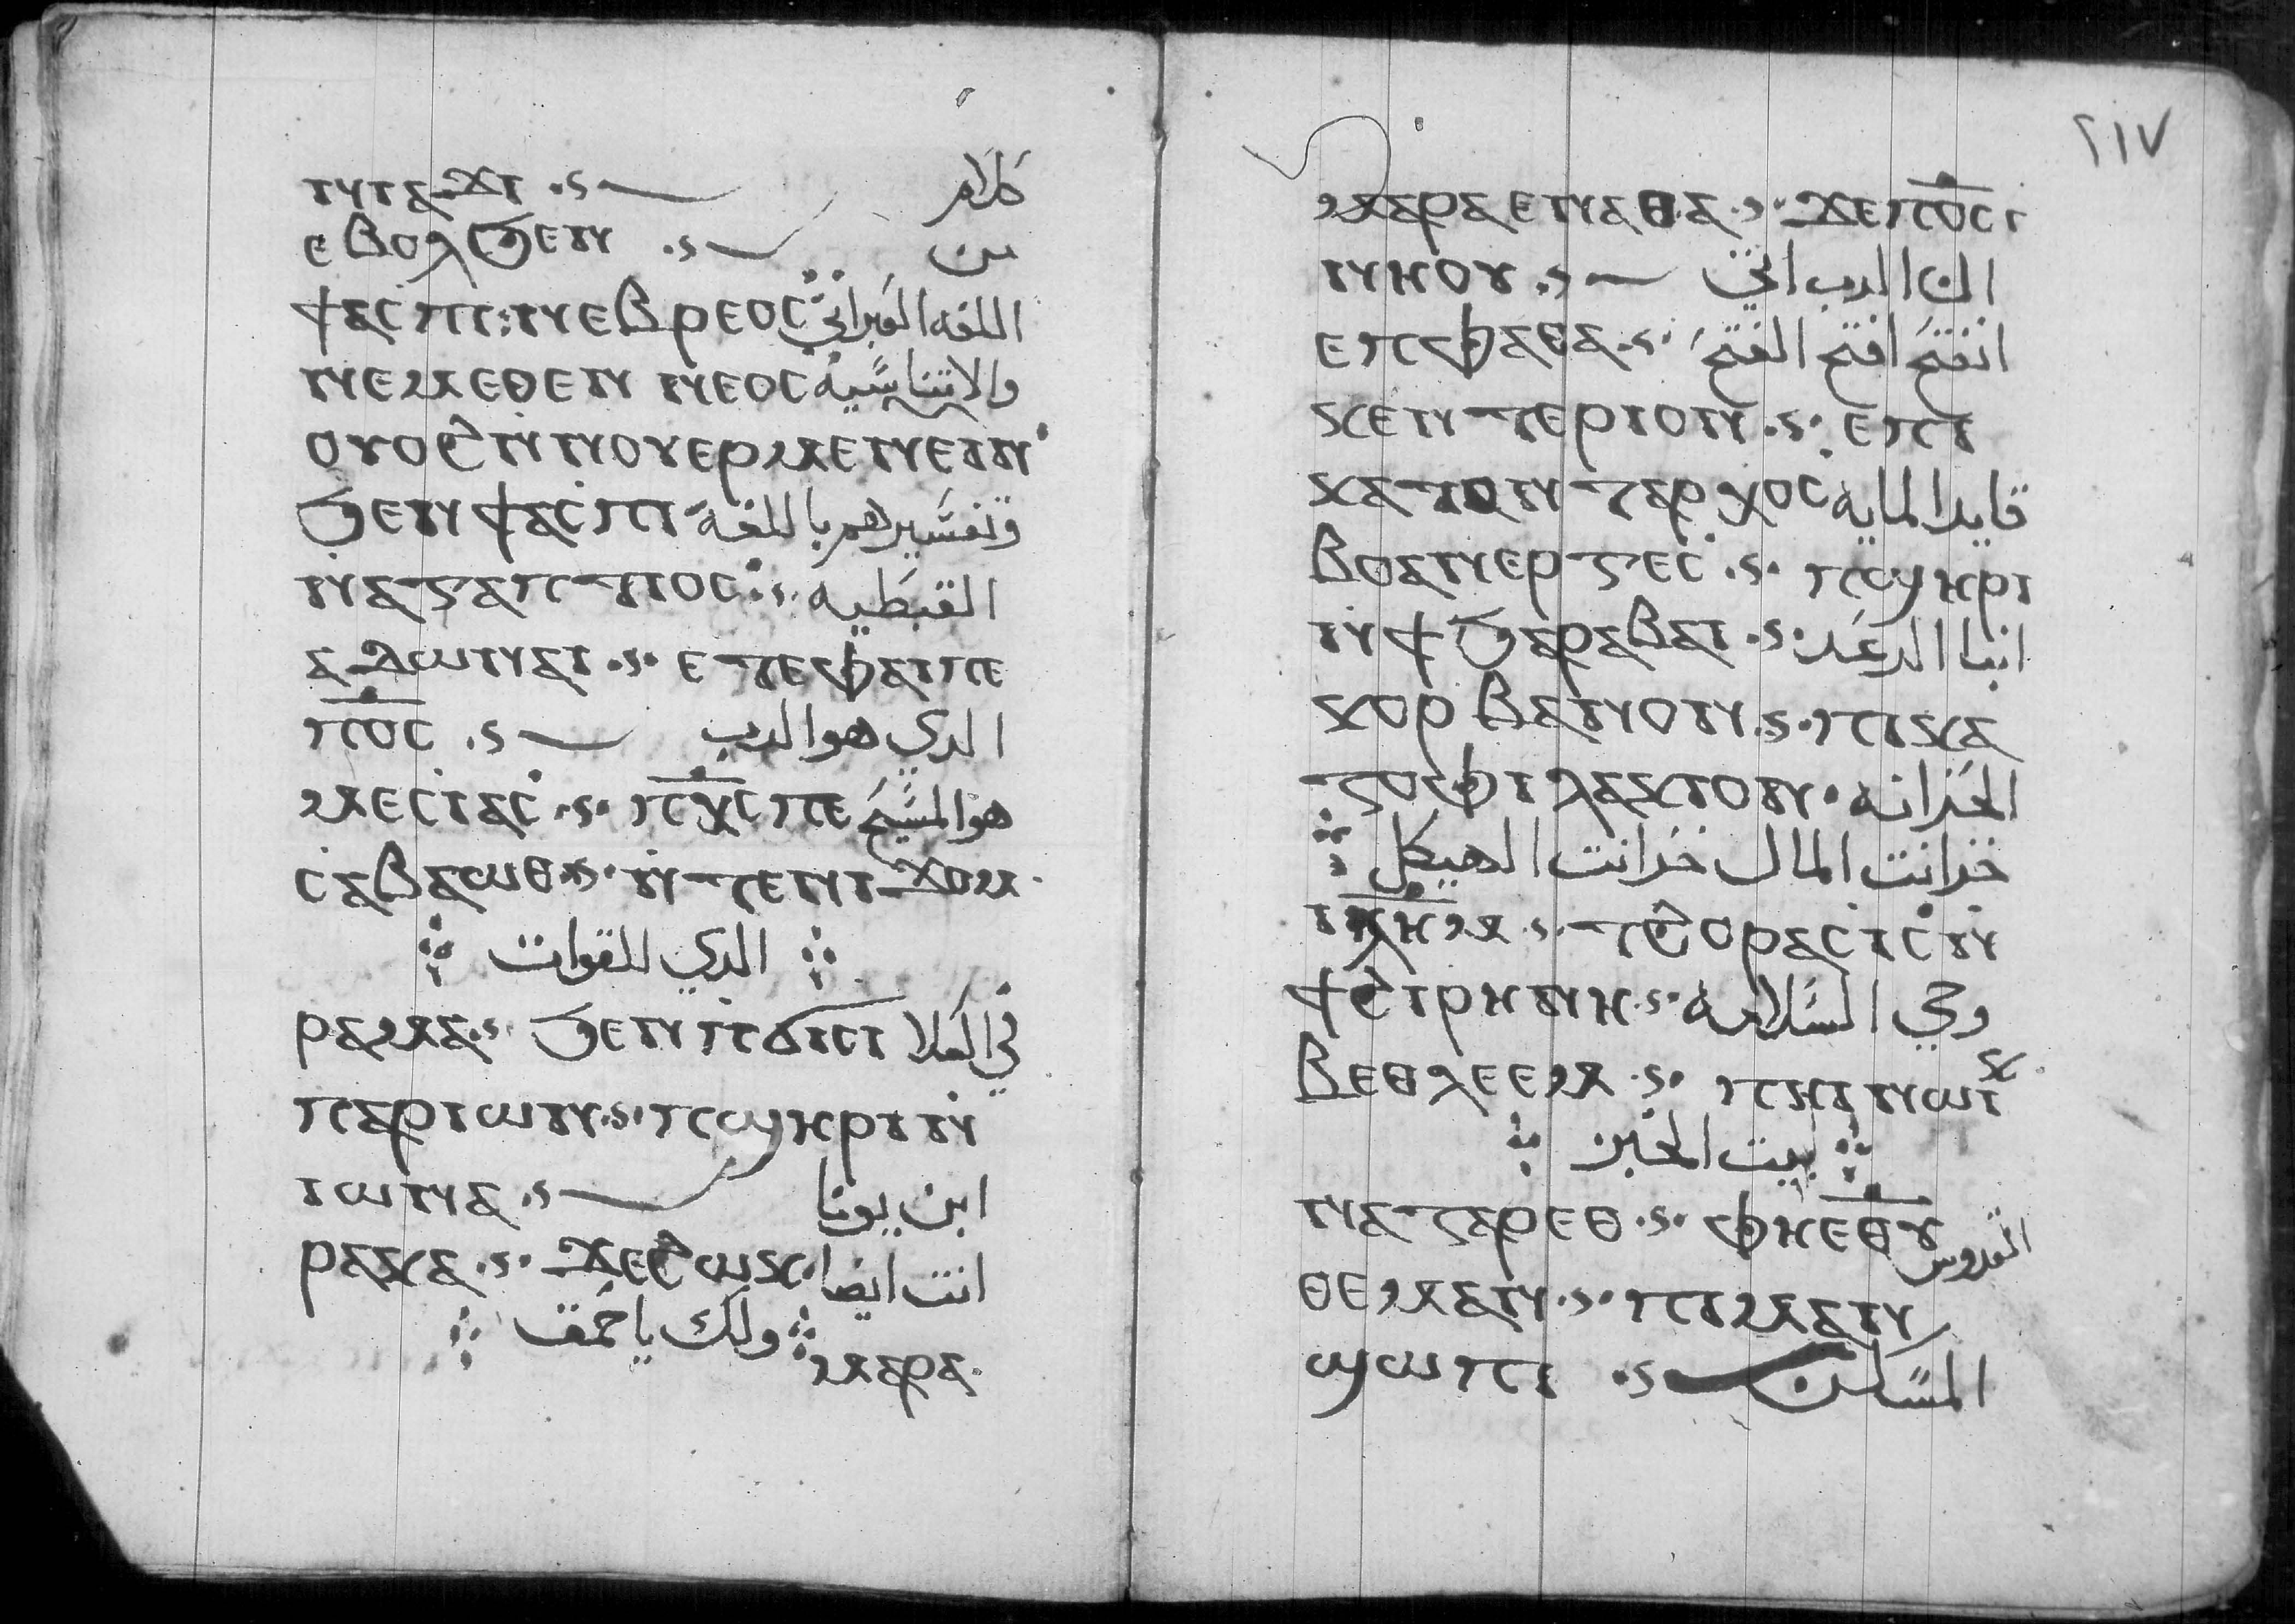 ⲛⲓⲥⲁϫⲓ ⳾ كلام
ⲉⲃⲟⲗϧⲉⲛ ⳾ من
ϯⲁⲥⲡⲓ: ⲛⲉⲃⲣⲉⲟⲥ اللغه العبراني
ⲛⲉⲙⲉⲑⲉⲛ ⲛⲉⲟⲥ والاتناسيه
ⲟⲩⲟϩ ⲛⲛⲟⲩⲉⲣⲙⲉⲛⲉⲓⲛ
ϧⲉⲛϯⲁⲥⲡⲓ وتفسيرهم باللغة
ⲛⲁⲅⲁⲡⲧⲓⲟⲥ ⳾ القبطيه
ⲁⲇⲱⲛⲁⲓ ⳾ ⲉⲧⲉⲫⲁⲓⲡⲉ
ⲡ̅ⲟ̅ⲥ̅ ⳾ الدي هو الرب
ⲙⲉⲥⲓⲁⲥ ⳾ ⲡⲭ̅ⲥ̅ⲡⲉ هو المسيح
ⲥⲁⲃⲁⲱⲑ ⳾ ⲛⲧⲉⲛⲓϫⲟⲙ
الدي للقوات
ⲣⲁⲙⲁ ⳾ ϧⲉⲛⲡϭⲓⲥⲓ في العلا
ⲡⲁⲣⲓⲱⲛ ⳾ ⲡϣⲏⲣⲓ ⲛ
ⲓⲱⲛⲁ ⳾ ابن يونا
ⲣⲁⲕⲁ ⳾ ϫⲉϩⲱⲕ انت ايضا
ولك ياحمق
ⲙⲁⲣⲁ
٢١٧
ⲙⲁⲣⲁⲉⲛⲁⲑⲁ ⳾ ϫⲉⲡ̅ⲟ̅ⲥ̅ⲓ
ⲛⲏⲟⲩ ⳾ ان الرب اتي
ⲉⲡⲫⲁⲑⲁ ⳾ انفتح افتح الفتح
ⲕⲉⲛⲧⲉⲣⲓⲟⲛ ⳾ ⲉⲡⲓ
ⲕⲁⲧⲟⲛⲧⲁⲣⲭⲟⲥ قايد المايه
ⲃⲟⲁⲛⲉⲣⲅⲉⲥ ⳾ ⲡϣⲏⲣⲓ
ⲛϯϧⲁⲣⲁⲃⲁⲓ ⳾ ابنا الرعد
ⲕⲟⲣⲃⲁⲛⲟⲛ ⳾ ⲡⲓⲕⲁ
ⲍⲟⲫⲓⲗⲁⲕⲓⲟⲛ الخزانه
خزانت المال خزانت الهيكل
ⲓⲗ̅ⲏ̅ⲙ̅ ⳾ ⲧϩⲟⲣⲁⲥⲓⲥ ⲛ
ϯϩⲓⲣⲏⲛⲏ ⳾ وحي السلامه
ⲃⲉⲑⲗⲉⲉⲙ ⳾ ⲡⲏⲓ ⲛⲱⲓⲕ
بيت الخبز
ⲛⲁⲍⲁⲣⲉⲑ ⳾ ⲫⲏⲉ̅ⲑ̅ⲩ̅ القدوس
ⲑⲉⲙⲁⲛ ⳾ ⲡⲓⲙⲁⲛ
ϣⲱⲡⲓ ⳾ المسكن